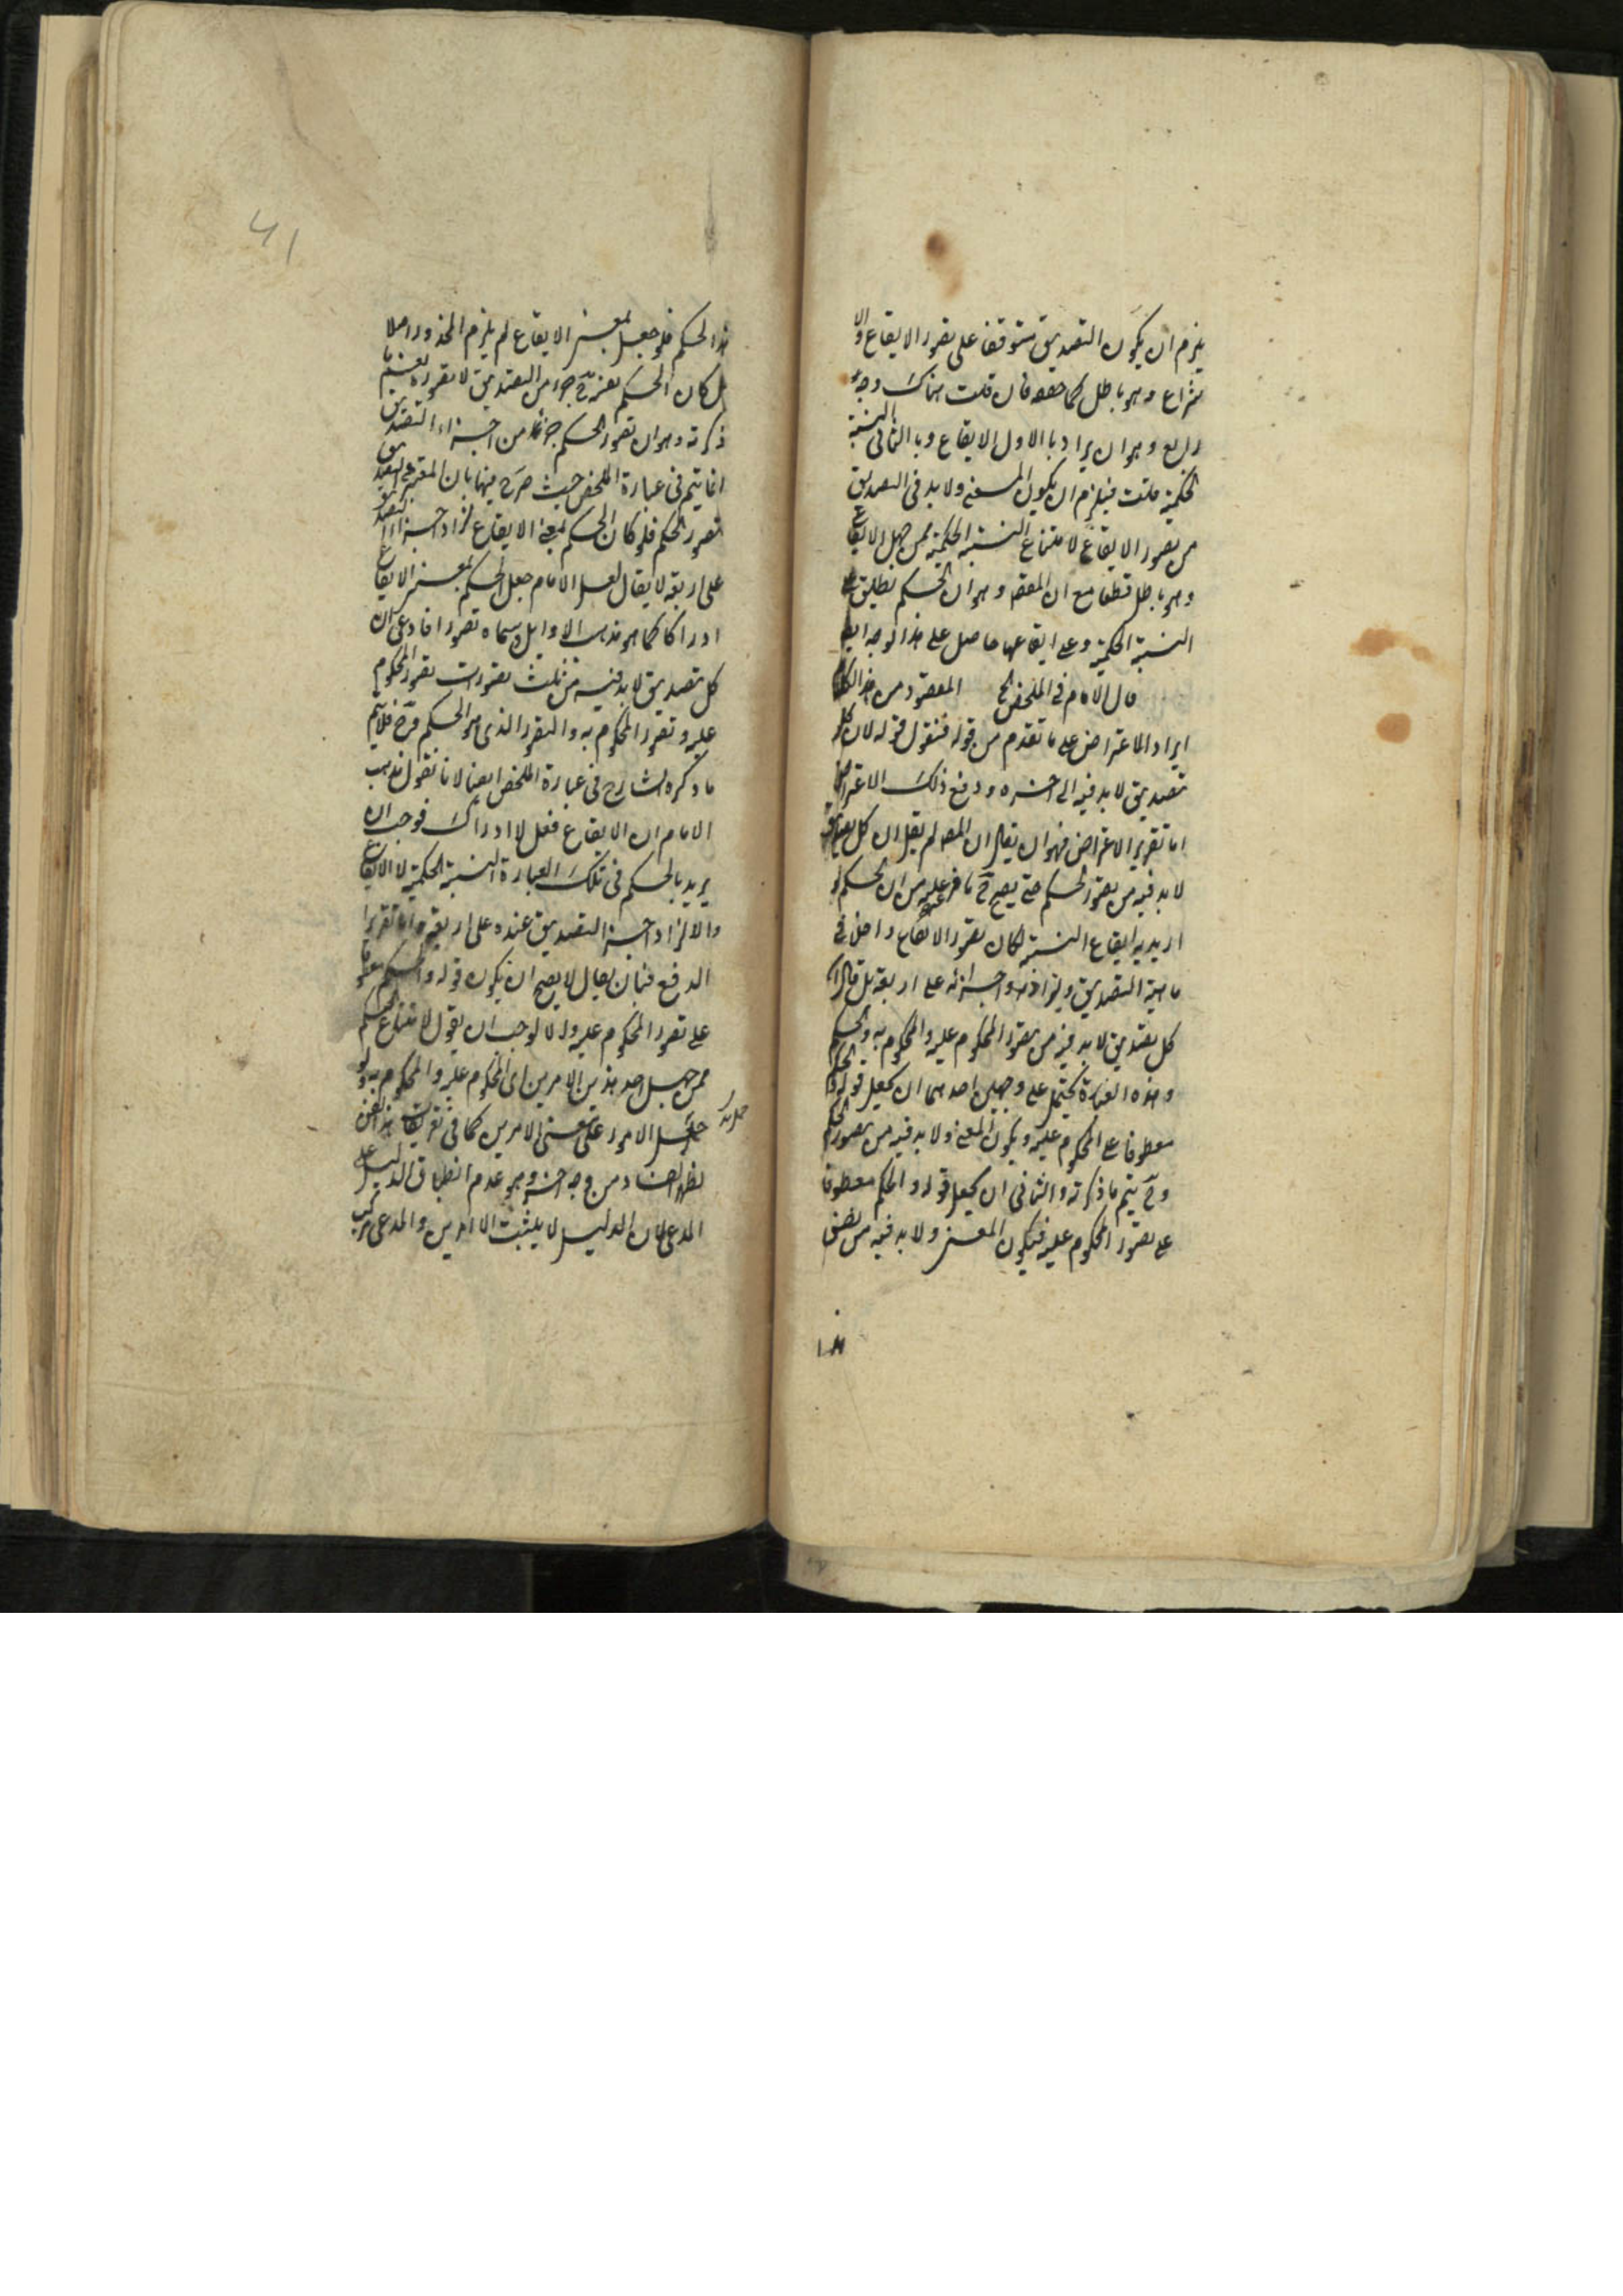 يلزم ان يكون التصديق متوقفا على تصور الايقاع والا
نتزاع وهو باطل كما حققه فان قلت هناك وجه
رابع وهو ان يراد بالاول الايقاع وبالثاني النسبة
الحكمية قلت فيلزم ان يكون المعنى ولا بد في التصديق
من تصور الايقاع لامتناع النسبة الحكمية ممن جهل الايقاع
وهو باطل قطعا مع ان المقصم وهو ان الحكم يطلق على
النسبة الحكمية وعلى ايقاعها حاصل على هذا الوجه ايضا
قال الامام في الملخص الخ المقصود من هذا الكلام
ايراد الاعتراض على ما تقدم من قوله فنقول قوله لان كل
تصديق لا بد فيه الى اخره ودفع ذلك الاعتراض
اما تقرير الاعتراض فهو ان يقال ان المصم لم يقل ان كل تصديق
لا بد فيه من تصور الحكم حتى يصح ح ما فرع عليه من ان الحكم لو
اريد به ايقاع النسبة لكان تصور الايقاع داخلا في
ماهية التصديق ولزاد اجزائه على اربعة بل قال ان
كل تصديق لا بد فيه من تصور المحكوم عليه والمحكوم به والحكم
وهذه العبارة يحتمل على وجهين احدهما ان يجعل قوله والحكم
معطوفا على المحكوم عليه ويكون المعنى ولا بد فيه من تصور الحكم
وح يتم ما ذكرته والثاني ان يجعل قوله والحكم معطوفا
على تصور المحكوم عليه فيكون المعنى ولا بد فيه من نفس
هذا
هذا الحكم فلو جعل بمعنى الايقاع لم يلزم المحذور اصلا
بل كان الحكم ح جزء من التصديق لا تصوره نعم ما
ذكرته وهو ان تصور الحكم جزئا من اجزاء التصديق
انما يتم في عبارة الملخص حيث صرح فيها بان المعتبر في التصديق
تصور الحكم فلو كان الحكم بمعنى الايقاع لزاد اجزاء التصديق
على اربعة لا يقال لعل الامام جعل الحكم بمعنى الايقاع
ادراكا كما هو مذهب الاوايل وسماه تصورا فادعى ان
كل تصديق لا بد فيه من ثلث تصورات تصور المحكوم
عليه وتصور المحكوم به والتصور الذي هو الحكم وح فلا يتم
ما ذكره الشارح في عبارة الملخص ايضا لانا نقول مذهب
الامام ان الايقاع فعل لا ادراك فوجب ان
يريد بالحكم في تلك العبارة النسبة الحكمية لا الايقاع
والا لزاد اجزاء التصديق عنده على اربعة واما تقرير
الدفع فبان يقال لا يصح ان يكون قوله والحكم معطوفا
على تصور المحكوم عليه والا لوجب ان يقول لامتناع الحكم
ممن جهل احد هذين الامرين اى المحكوم عليه والمحكوم به ولو
حمل الامور على معنى الامرين كما في تعريفات هذا الفن
لظهر الفساد من وجه اخر وهو عدم انطباق الدليل على
المدعى لان الدليل لا يثبت الا امرين والمدعى مركب